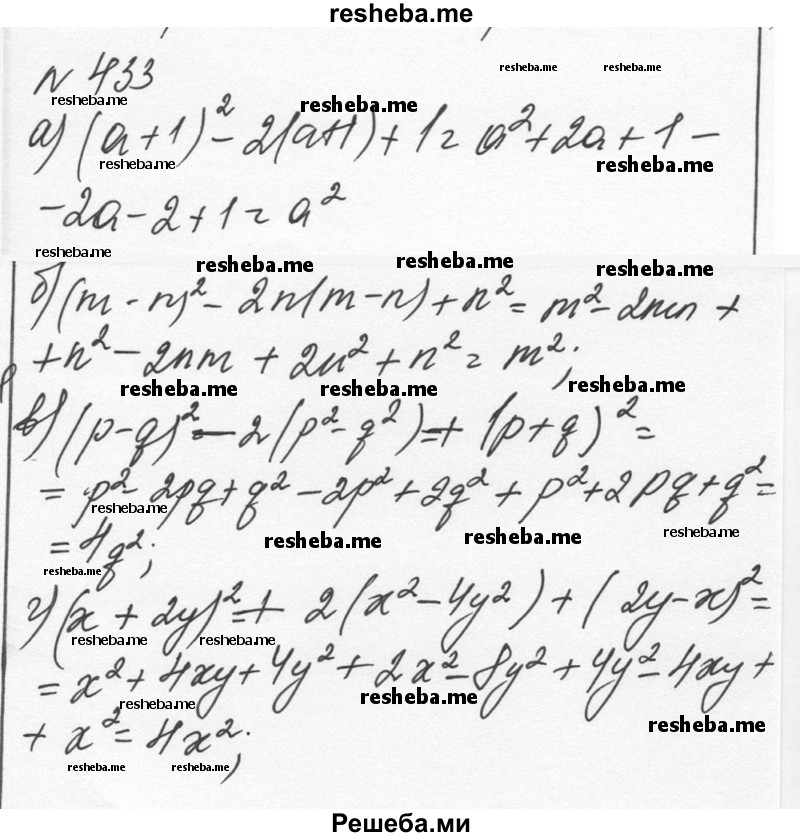 resheba.me
N 433
resheba.me resheba.me
resheba.me resheba.me
а) (a+1)² - 2(a+1) + 1 = a² + 2a + 1 -
resheba.me resheba.me
- 2a - 2 + 1 = a²
resheba.me
resheba.me resheba.me resheba.me
б) (m - n)² - 2n(m-n) + n² = m² - 2mn +
+ n² - 2nm + 2n² + n² = m²;
resheba.me resheba.me resheba.me
в) (p-q)² - 2(p² - q²) + (p+q)² =
= p² - 2pq + q² - 2p² + 2q² + p² + 2pq + q² =
resheba.me resheba.me
= 4q²;
resheba.me resheba.me
resheba.me
г) (x + 2y)² + 2(x² - 4y²) + (2y-x)² =
resheba.me resheba.me
= x² + 4xy + 4y² + 2x² - 8y² + 4y² - 4xy +
resheba.me resheba.me
+ x² = 4x²;
resheba.me
resheba.me resheba.me
Решеба.ми